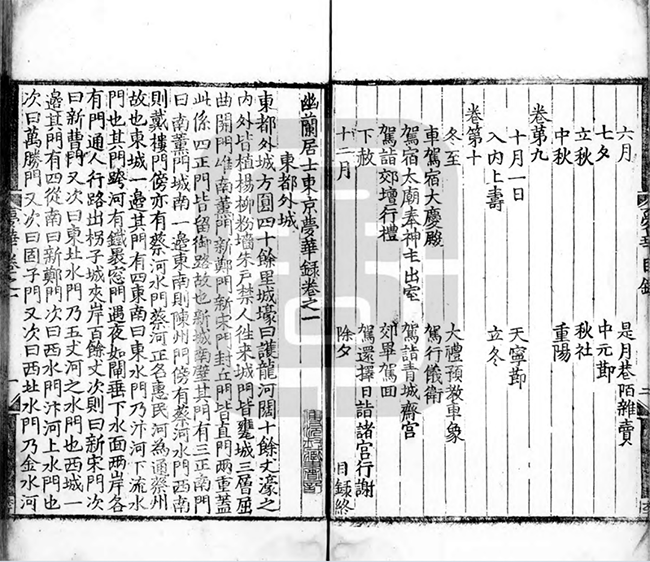 六月 是月巷陌雜賣
七夕 中元節
立秋 秋社
中秋 重陽
卷第九
十月一日 天寧節
入內上壽 立冬
卷第十
冬至 大禮預教車象
車駕宿大慶殿 駕行儀衛
駕宿太廟奉神主出室 駕詣青城齋宮
駕詣郊壇行禮 郊畢駕囬
下赦 駕還擇日詣諸宮行謝
十二月 除夕 目錄終
夢華目錄 二
幽蘭居士東京夢華錄卷之一
東都外城
東都外城方圓四十餘里城壕曰護龍河闊十餘丈濠之
內外皆植楊柳粉墻朱戶禁人徃來城門皆甕城三層屈
曲開門唯南薰門新鄭門新宋門封丘門皆直門兩重蓋
此係四正門皆留御路故也新城南壁其門有三正南門
曰南薰門城南一邊東南則陳州門傍有蔡河水門西南
則戴樓門傍亦有蔡河水門蔡河正名惠民河為通蔡州
故也東城一邊其門有四東南曰東水門乃汴河下流水
門也其門跨河有鐵裹窓門遇夜如閘垂下水面兩岸各
有門通人行路出拐子城夾岸百餘丈次則曰新宋門次
曰新曹門又次曰東北水門乃五丈河之水門也西城一
邊其門有四從南曰新鄭門次曰西水門汴河上水門也
次曰萬勝門又次曰固子門又次曰西北水門乃金水河
夢華卷之一 一